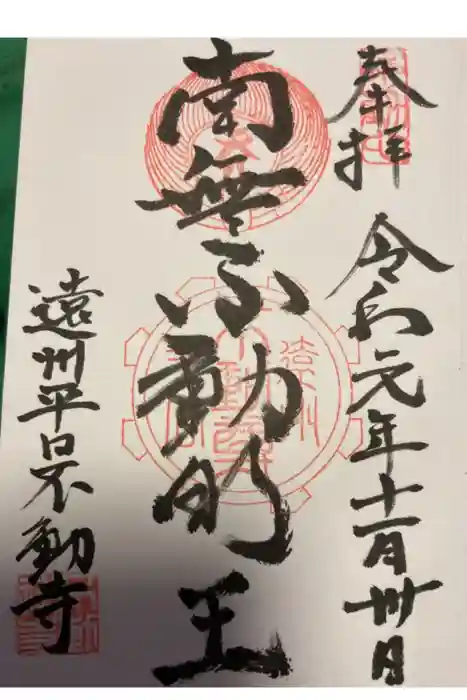 奉拝
令和元年十一月卅日
南無不動明王
遠州平口不動寺